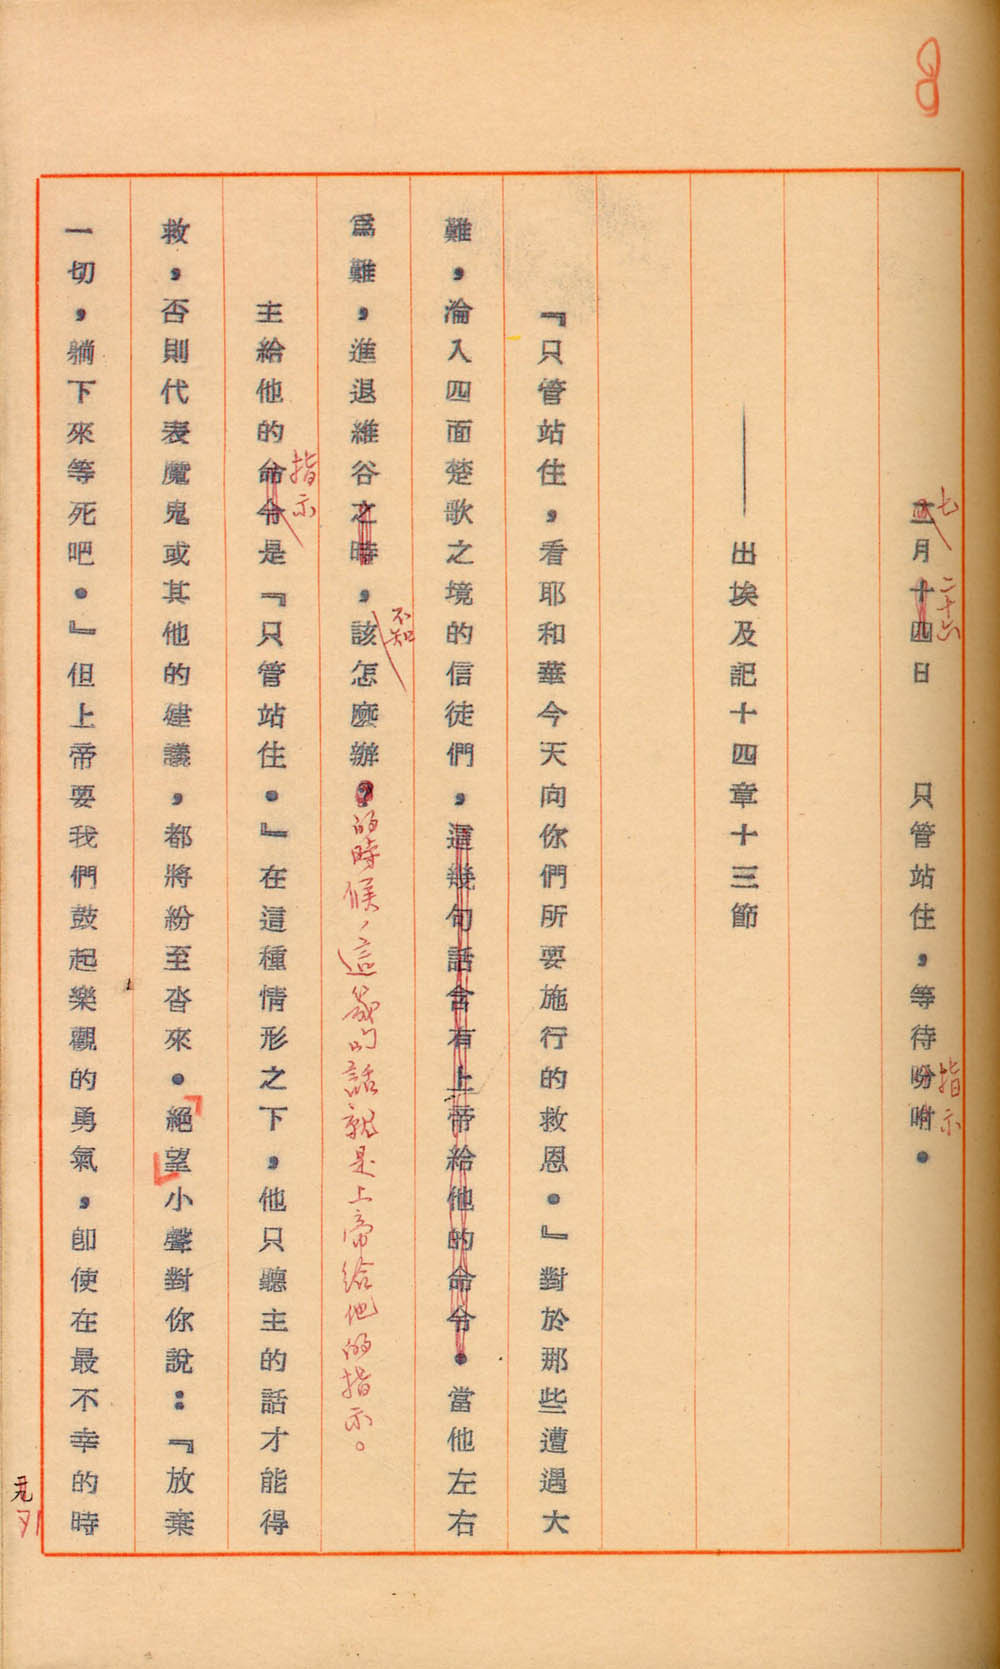 8
三月十四日　　只管站住，等待吩咐。
七
二十六
指示
——出埃及記十四章十三節
『只管站住，看耶和華今天向你們所要施行的救恩。』對於那些遭遇大
難，淪入四面楚歌之境的信徒們，這幾句話含有上帝給他的命令。當他左右
為難，進退維谷之時，該怎麼辦，
不知
的時候，這幾句話就是上帝給他的指示。
主給他的命令是『只管站住。』在這種情形之下，他只聽主的話才能得
指示
救，否則代表魔鬼或其他的建議，都將紛至沓來。絕望小聲對你說：『放棄
「」
一切，躺下來等死吧。』但上帝要我們鼓起樂觀的勇氣，卽使在最不幸的時